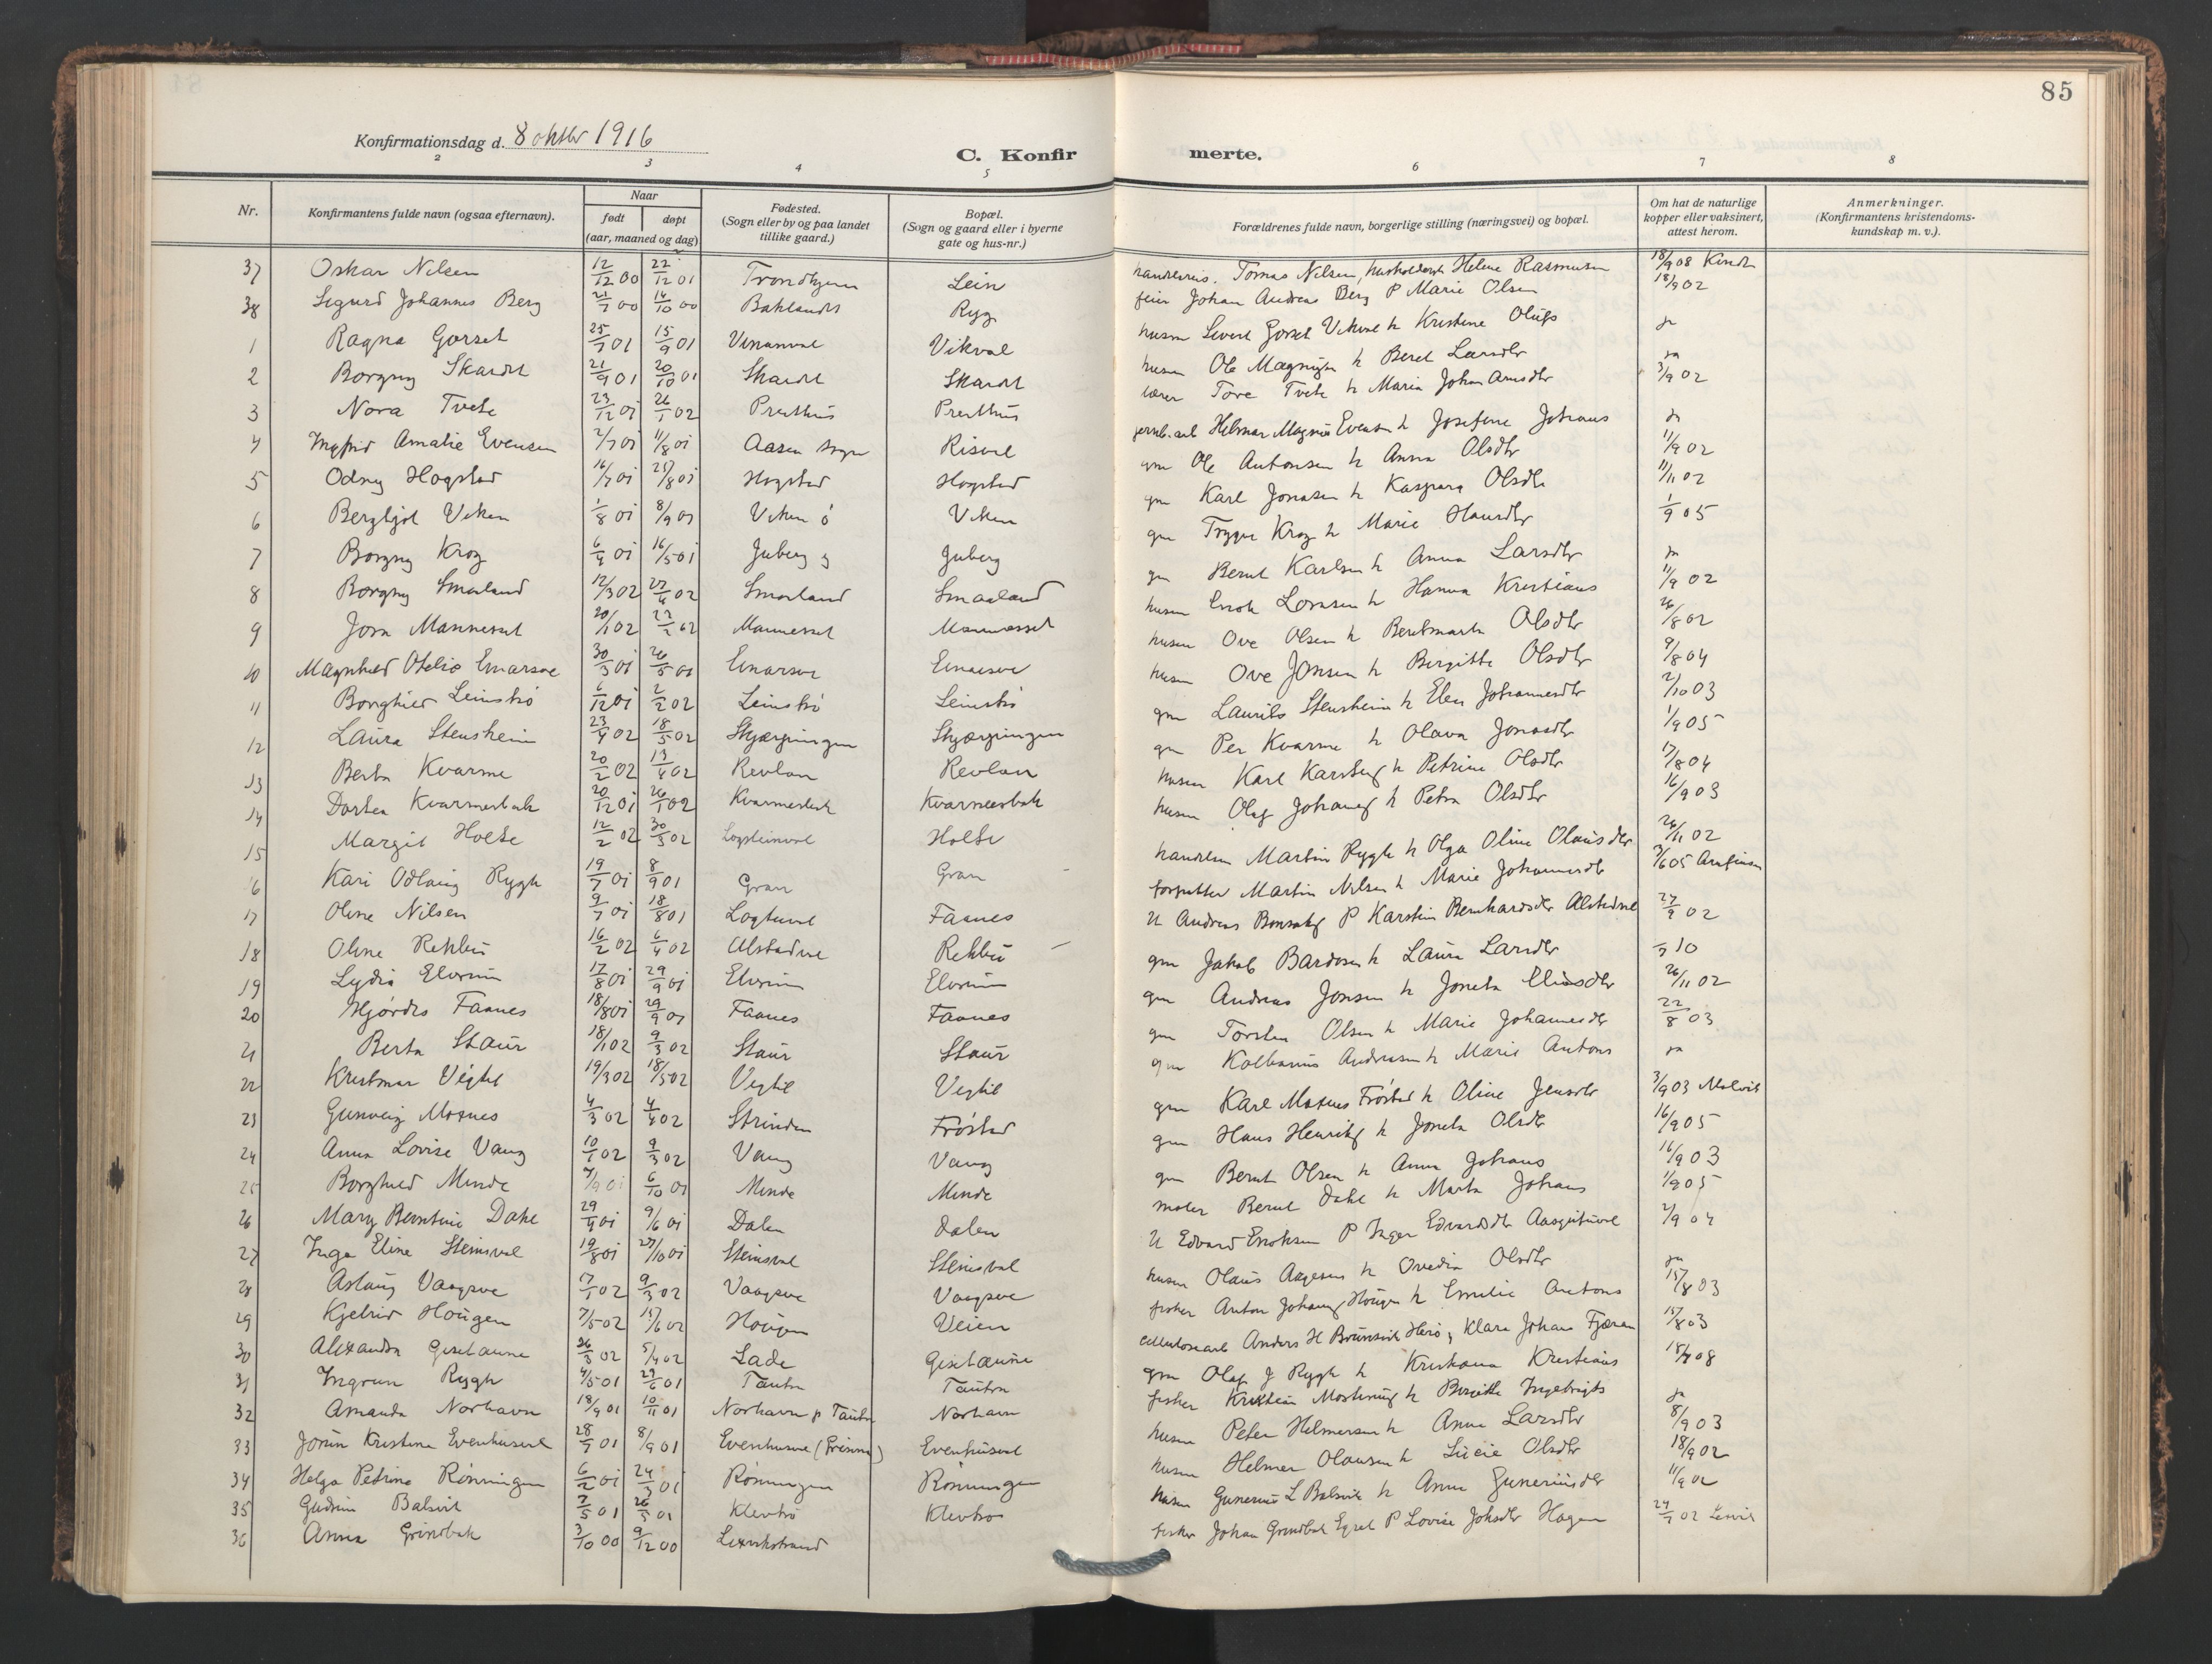 85
Konfirmationsdag d. 8 oktbr 1916
C. Konfirmerte.
2 3 4 5 6 7 8
Nr.
Konfirmantens fulde navn (ogsaa efternavn).
Naar
født
døpt
(aar, maaned og dag)
Fødested.
(Sogn eller by og paa landet
tillike gaard.)
Bopæl.
(Sogn og gaard eller i byerne
gate og hus-nr.)
Forældrenes fulde navn, borgerlige stilling (næringsvei) og bopæl.
Om hat de naturlige
kopper eller vaksinert,
attest herom.
Anmerkninger.
(Konfirmantens kristendoms-
kundskap m. v.).
37 Oskar Nilsen 12/12 00 22/12 01 Trondhjem Lein Tomas Nilsen, Helene Rasmusen 18/9 08
38 Sigurd Johannes Berg 21/7 00 14/10 00 Baklandet Ryg feier Johan Andreas Berg P Marie Olsen 18/9 02
1 Ragna Gorset 25/7 01 15/9 01 Vikval husm Sivert Gorset Vikval h Kristine Olufs ja
2 Borgny Skardet 21/9 01 20/10 01 Skardet Skardet husm Ole Magnusen h Beret Larsdtr ja
3 Nora Tvete 23/12 01 26/1 02 Presthus Presthus lærer Tore Tvete h Maria Johan Arnsdtr 3/9 02
4 Ingfrid Amalie Evensen 2/7 01 11/8 01 Aasen sogn Risvel jernb.arb Helmer Magnus Evensen h Josefine Johans ja
5 Odny Hogstad 16/7 01 25/8 01 Hogstad Hogstad gm Ole Antonsen h Anna Olsdtr 11/9 02
6 Bergljot Viken 1/8 01 8/9 01 Viken ö Viken gm Karl Jonasen h Kaspara Olsdtr 11/11 02
7 Borgny Krog 6/4 01 16/5 01 Juberg Juberg gm Trygve Krog h Marie Hansdtr 1/9 05
8 Borgny Smaaland 12/3 02 27/4 02 Smaaland Smaaland gm Bernt Karlsen h Anna Larsdtr ja
9 Jora Mannesset 20/1 02 Mannesset Mannesset husm h Hanna Kristians 11/9 02
10 Magnhild Otelie Einarsve 30/3 01 26/5 01 Einarsve Einarsve husm Ove Olsen h Beretmarta Olsdtr 26/8 02
11 Borghild Leinströ 6/12 01 2/2 02 Leinströ Leinströ husm Ove Jonsen h Birgitte Olsdtr 9/8 04
12 Laura Stensheim 23/4 02 18/5 02 Skjærpingen Skjærpingen gm Laurits Stensheim h Elen Johannesdtr 2/10 03
13 Berta Kvarme 20/2 02 13/4 02 Revlan Revlan gm Per Kvarme h Olava Jonasdtr 1/9 05
14 Dortea Kvarmesbak 20/12 01 26/1 02 Kvarmesbak Kvarmesbak husm Karl h Petrine Olsdtr 17/8 04
15 Margit Holte 12/2 02 30/3 02 Holte husm Olaf Johansen h Petra Olsdtr 16/9 03
16 Kari Odlaug Rygh 19/7 01 8/9 01 Gran Gran handelsm Martin Rygh h Olga Oline Olausdtr 26/11 02
17 Oline Nilsen 9/7 01 18/8 01 Faanes forpakter Martin Nilsen h Marie Johannesdtr
18 Oline Rekbu 16/2 02 6/4 02 Rekbu U Andreas P Karstin Bernhardsdtr 27/9 02
19 Lydia Elvrum 17/8 01 29/9 01 Elvrum Elvrum gm Jakob Bardosen h Laura Larsdtr
20 Hjördis Faanes 18/8 01 29/9 01 Faanes Faanes gm Andreas Jonsen h Joneta Eliasdtr 26/11 02
21 Berta Staur 18/1 02 9/3 02 Staur Staur gm Torsten Olsen h Marie Johannesdtr 22/8 03
22 Kristmar Vigtil 19/3 02 18/5 02 Vigtil Vigtil gm Kolbanus Andreasen h Marie Antons ja
23 Gunveig Moxnes 4/3 02 4/4 02 Strinden Fröstad gm Karl Moxnes Fröstad h Oline Jensdtr 3/9 03 Malvik
24 Anna Lovise Vang 10/1 02 9/3 02 Vang Vang gm Hans Henriks h Joneta Olsdtr 16/9 05
25 Borghild Minde 7/9 01 6/10 01 Minde Minde gm Bernt Olsen h Anna Johans 16/9 03
26 Mary Berntine Dahl 29/4 01 9/6 01 Dalen Dalen maler Bernt Dahl h Marta Johans 1/9 05
27 Inga Eline Steinsval 19/8 01 27/10 01 Steinsval Steinsval U Edvard Eriksen P Inger Edvardsdtr 2/9 04
28 Aslaug Vaagsve 7/1 02 9/3 02 Vaagsve Vaagsve husm Olaus Aagesen h Ovedia Olsdtr ja
29 Kjelrid Hougen 7/5 02 15/6 02 Hougen Veien fisker Anton Johansen Hougen h Emilie Antons 15/8 03
30 Alexandra Gisetaune 26/3 02 5/4 02 Lade Gisetaune Anders H Klara Johans Fjæran 15/8 03
31 Ingrun Rygh 4/5 01 29/6 01 Tautra Tautra gm Olaf J Rygh h Kristiana Kristians
32 Amanda Norhavn 18/9 01 10/11 01 Norhavn p Tautra Norhavn fisker Kristian h Birgitte Ingebrigts ja
33 Jorun Kristine Evenhusvel 28/7 01 8/9 01 Evenhusvel husm Peter Helmersen h Anna Larsdtr 8/9 03
34 Helga Petrine Rönningen 6/2 01 24/3 01 Rönningen Rönningen husm Helmer Olausen h Lucie Olsdtr 18/9 02
35 Gudrun Balsvik 7/5 01 26/5 01 Klevtrö Klevtro husm Gunerius L Balsvik h Anna Guneriusdtr 11/9 02
36 Anna Grindbak 3/10 00 9/12 00 Lexvikstrand fisker Johan Grindbak P Lovise Johsdtr Hagen